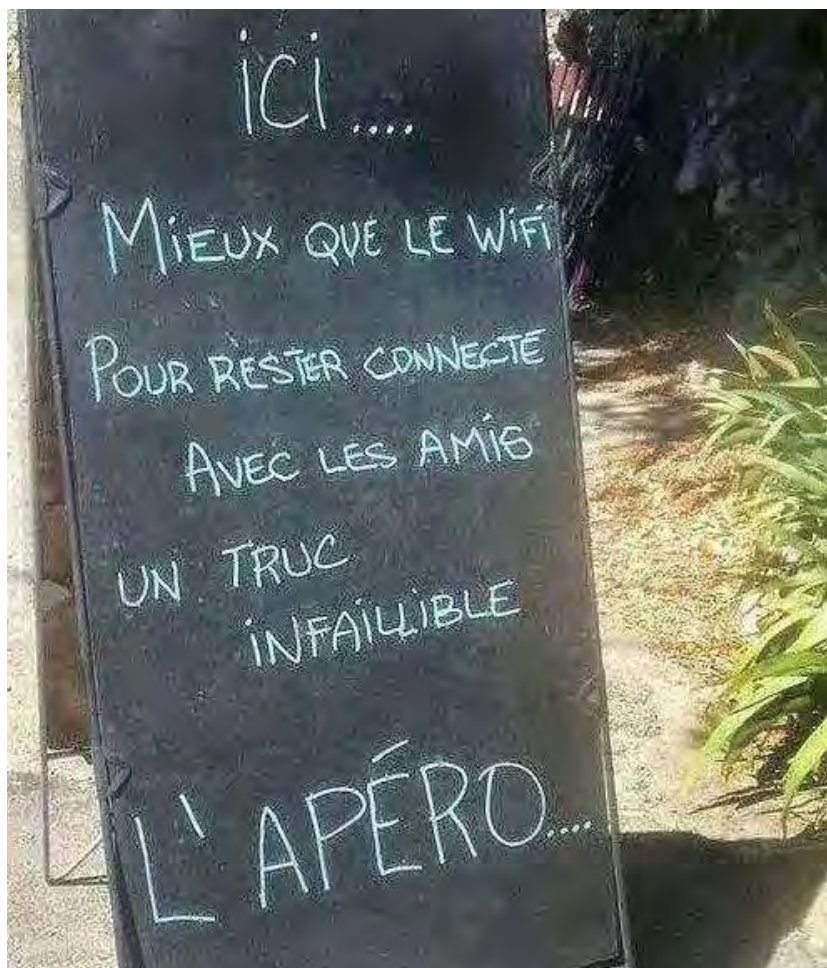 iCi ....
MiEUX QUE LE WiFi
POUR RESTER CONNECTE
AVEC LES AMiS
UN TRUC
iNFAiLLiBLE
L'APÉRO....